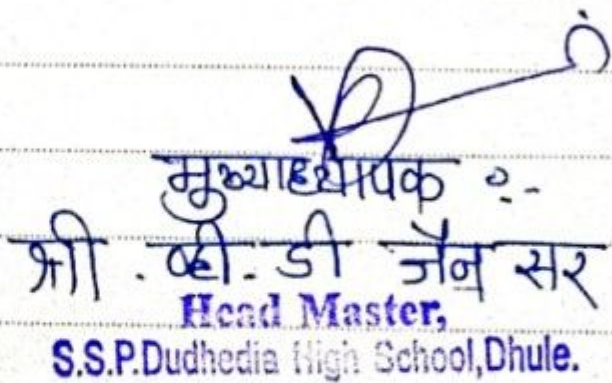 मुख्याध्यापक :-
श्री. व्ही. डी जैन सर
Head Master,
S.S.P.Dudhedia High School,Dhule.